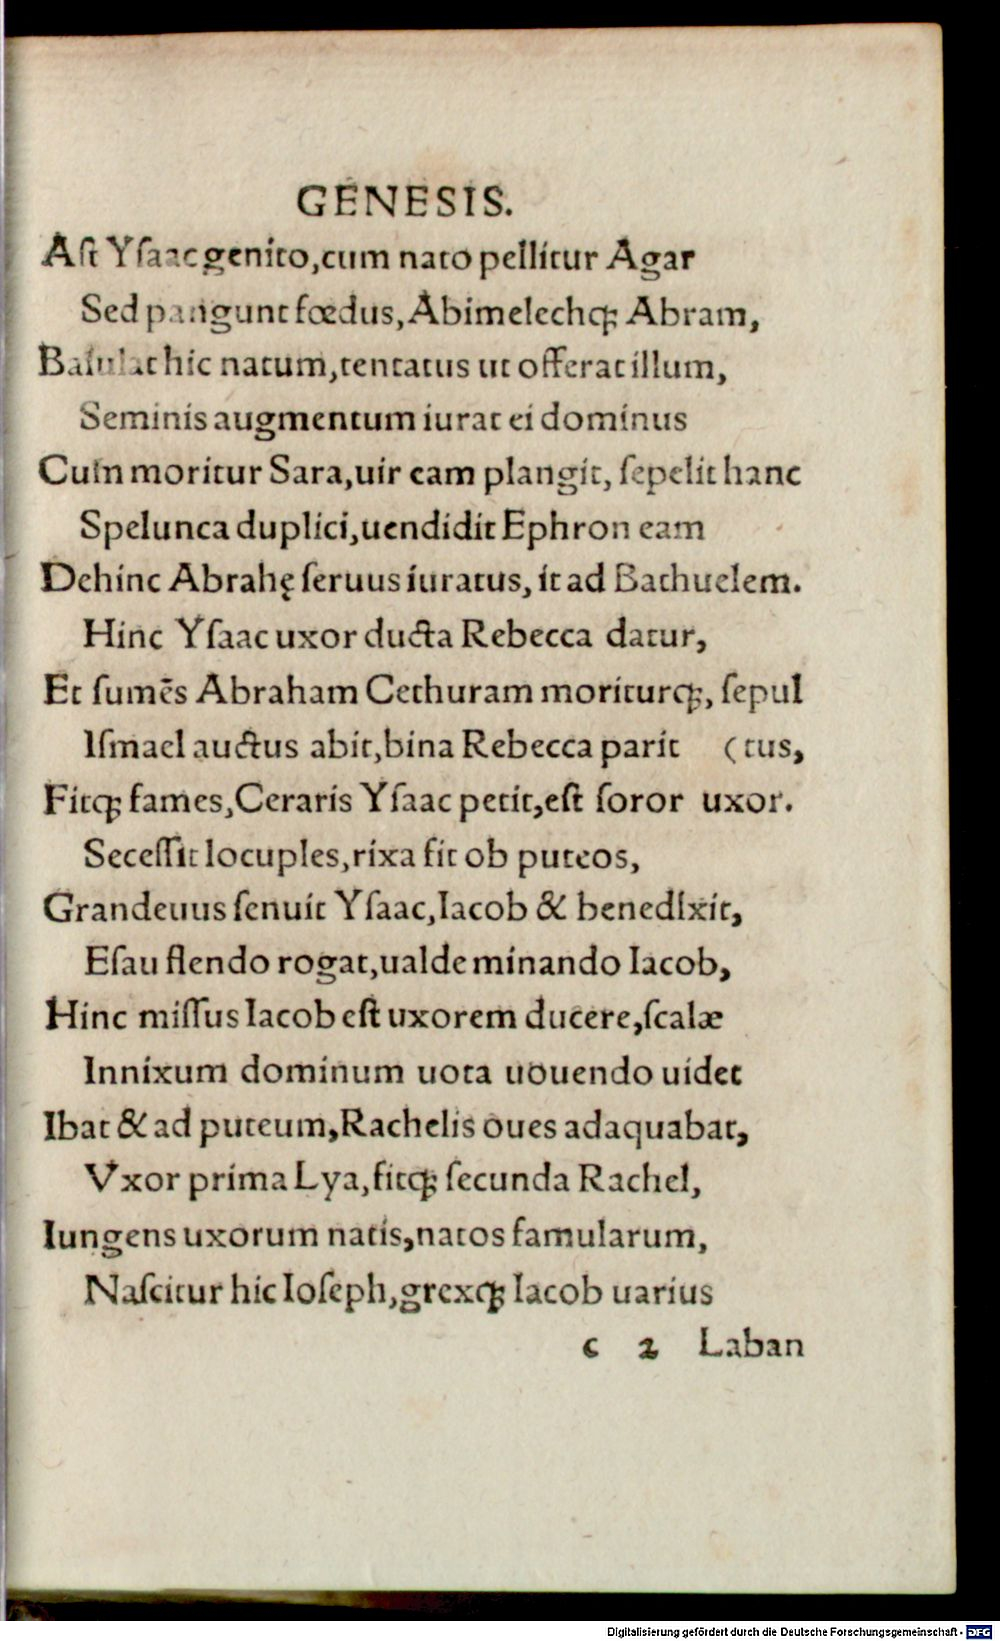 GENESIS.
Aſt Yſaac genito, cum nato pellitur Agar
Sed pangunt fœdus, Abimelechqꝫ Abram,
Baiulat hic natum, tentatus ut offerat illum,
Seminis augmentum iurat ei dominus
Cum moritur Sara, uir eam plangit, ſepelit hanc
Spelunca duplici, uendidit Ephron eam
Dehinc Abrahę ſeruus iuratus, it ad Bathuelem.
Hinc Yſaac uxor ducta Rebecca datur,
Et ſumēs Abraham Cethuram moriturqꝫ, ſepul
Iſmael auctus abit, bina Rebecca parit (tus,
Fitqꝫ fames, Ceraris Yſaac petit, eſt ſoror uxor.
Seceſſit locuples, rixa fit ob puteos,
Grandeuus ſenuit Yſaac, Iacob & benedixit,
Eſau flendo rogat, ualde minando Iacob,
Hinc miſſus Iacob eſt uxorem ducere, ſcalæ
Innixum dominum uota uouendo uidet
Ibat & ad puteum, Rachelis oues adaquabat,
Vxor prima Lya, fitqꝫ ſecunda Rachel,
Iungens uxorum natis, natos famularum,
Naſcitur hic Ioſeph, grexqꝫ Iacob uarius
c 2 Laban
Digitalisierung gefördert durch die Deutsche Forschungsgemeinschaft - DFG